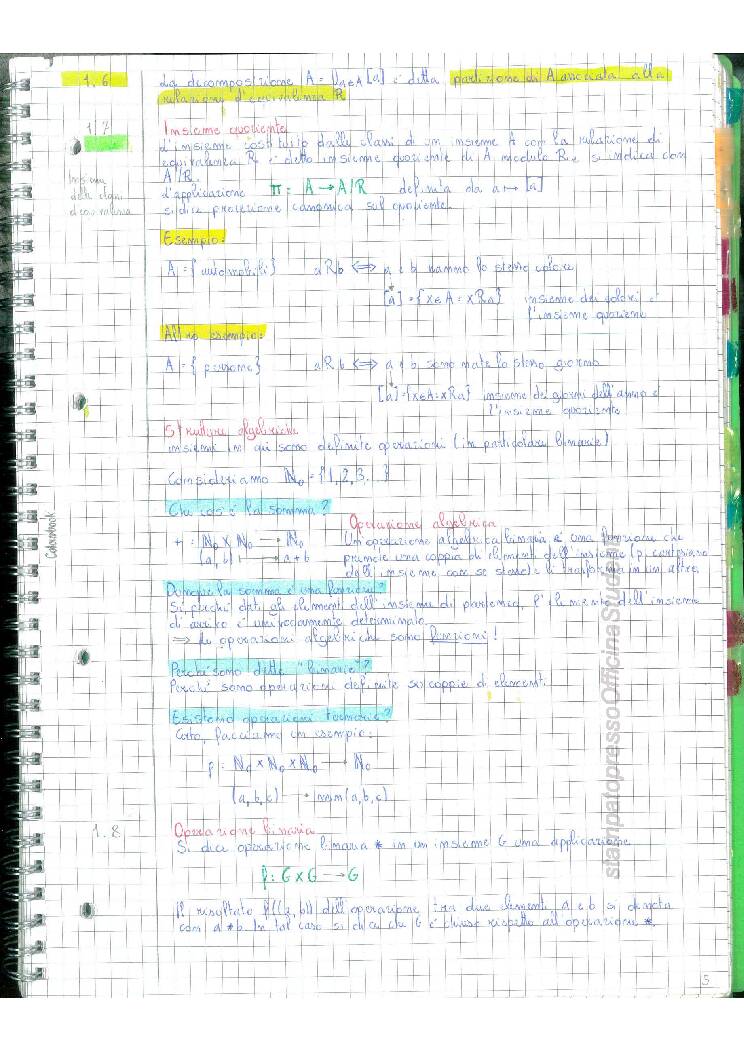 1.6 La decomposizione A = ∪a∈A [a] è detta partizione di A associata alla
relazione d'equivalenza R
1.7 Insieme quoziente
L'insieme costituito dalle classi di un insieme A con la relazione di
equivalenza R è detto insieme quoziente di A modulo R e si indica con
A/R.
Insieme
delle classi
d'equivalenza
L'applicazione π: A → A/R definita da a ↦ [a]
si dice proiezione canonica sul quoziente.
Esempio:
A = {automobili} aRb ⟺ a e b hanno lo stesso colore
[a] = {x∈A : xRa} insieme dei colori è
l'insieme quoziente
Altro esempio:
A = {persone} aRb ⟺ a e b sono nate lo stesso giorno
[a] = {x∈A : xRa} insieme dei giorni dell'anno è
l'insieme quoziente
Strutture algebriche
insiemi in cui sono definite operazioni (in particolare binarie)
Consideriamo ℕ₀ = {1,2,3,..}
Che cos'è la somma?
+ : ℕ₀ × ℕ₀ → ℕ₀
(a, b) → a + b
Operazione algebrica
Un'operazione algebrica binaria è una funzione che
prende una coppia di elementi dell'insieme (p. cartesiano
dell'insieme con se stesso) e li trasforma in un altro.
Dunque la somma è una funzione?
Si perché dati gli elementi dell'insieme di partenza, l'elemento dell'insieme
di arrivo è univocamente determinato.
⇒ Le operazioni algebriche sono funzioni!
Perché sono dette "binarie"?
Perché sono operazioni definite su coppie di elementi.
Esistono operazioni ternarie?
Certo, facciamo un esempio:
f : ℕ₀ × ℕ₀ × ℕ₀ → ℕ₀
(a, b, c) → min(a, b, c)
1.8 Operazione binaria
Si dice operazione binaria * in un insieme G una applicazione
f : G × G → G
Il risultato f((a, b)) dell'operazione tra due elementi a e b si denota
con a * b. In tal caso si dice che G è chiuso rispetto all'operazione *.
Colourbook
stampatopressoOfficinaStudenti
5